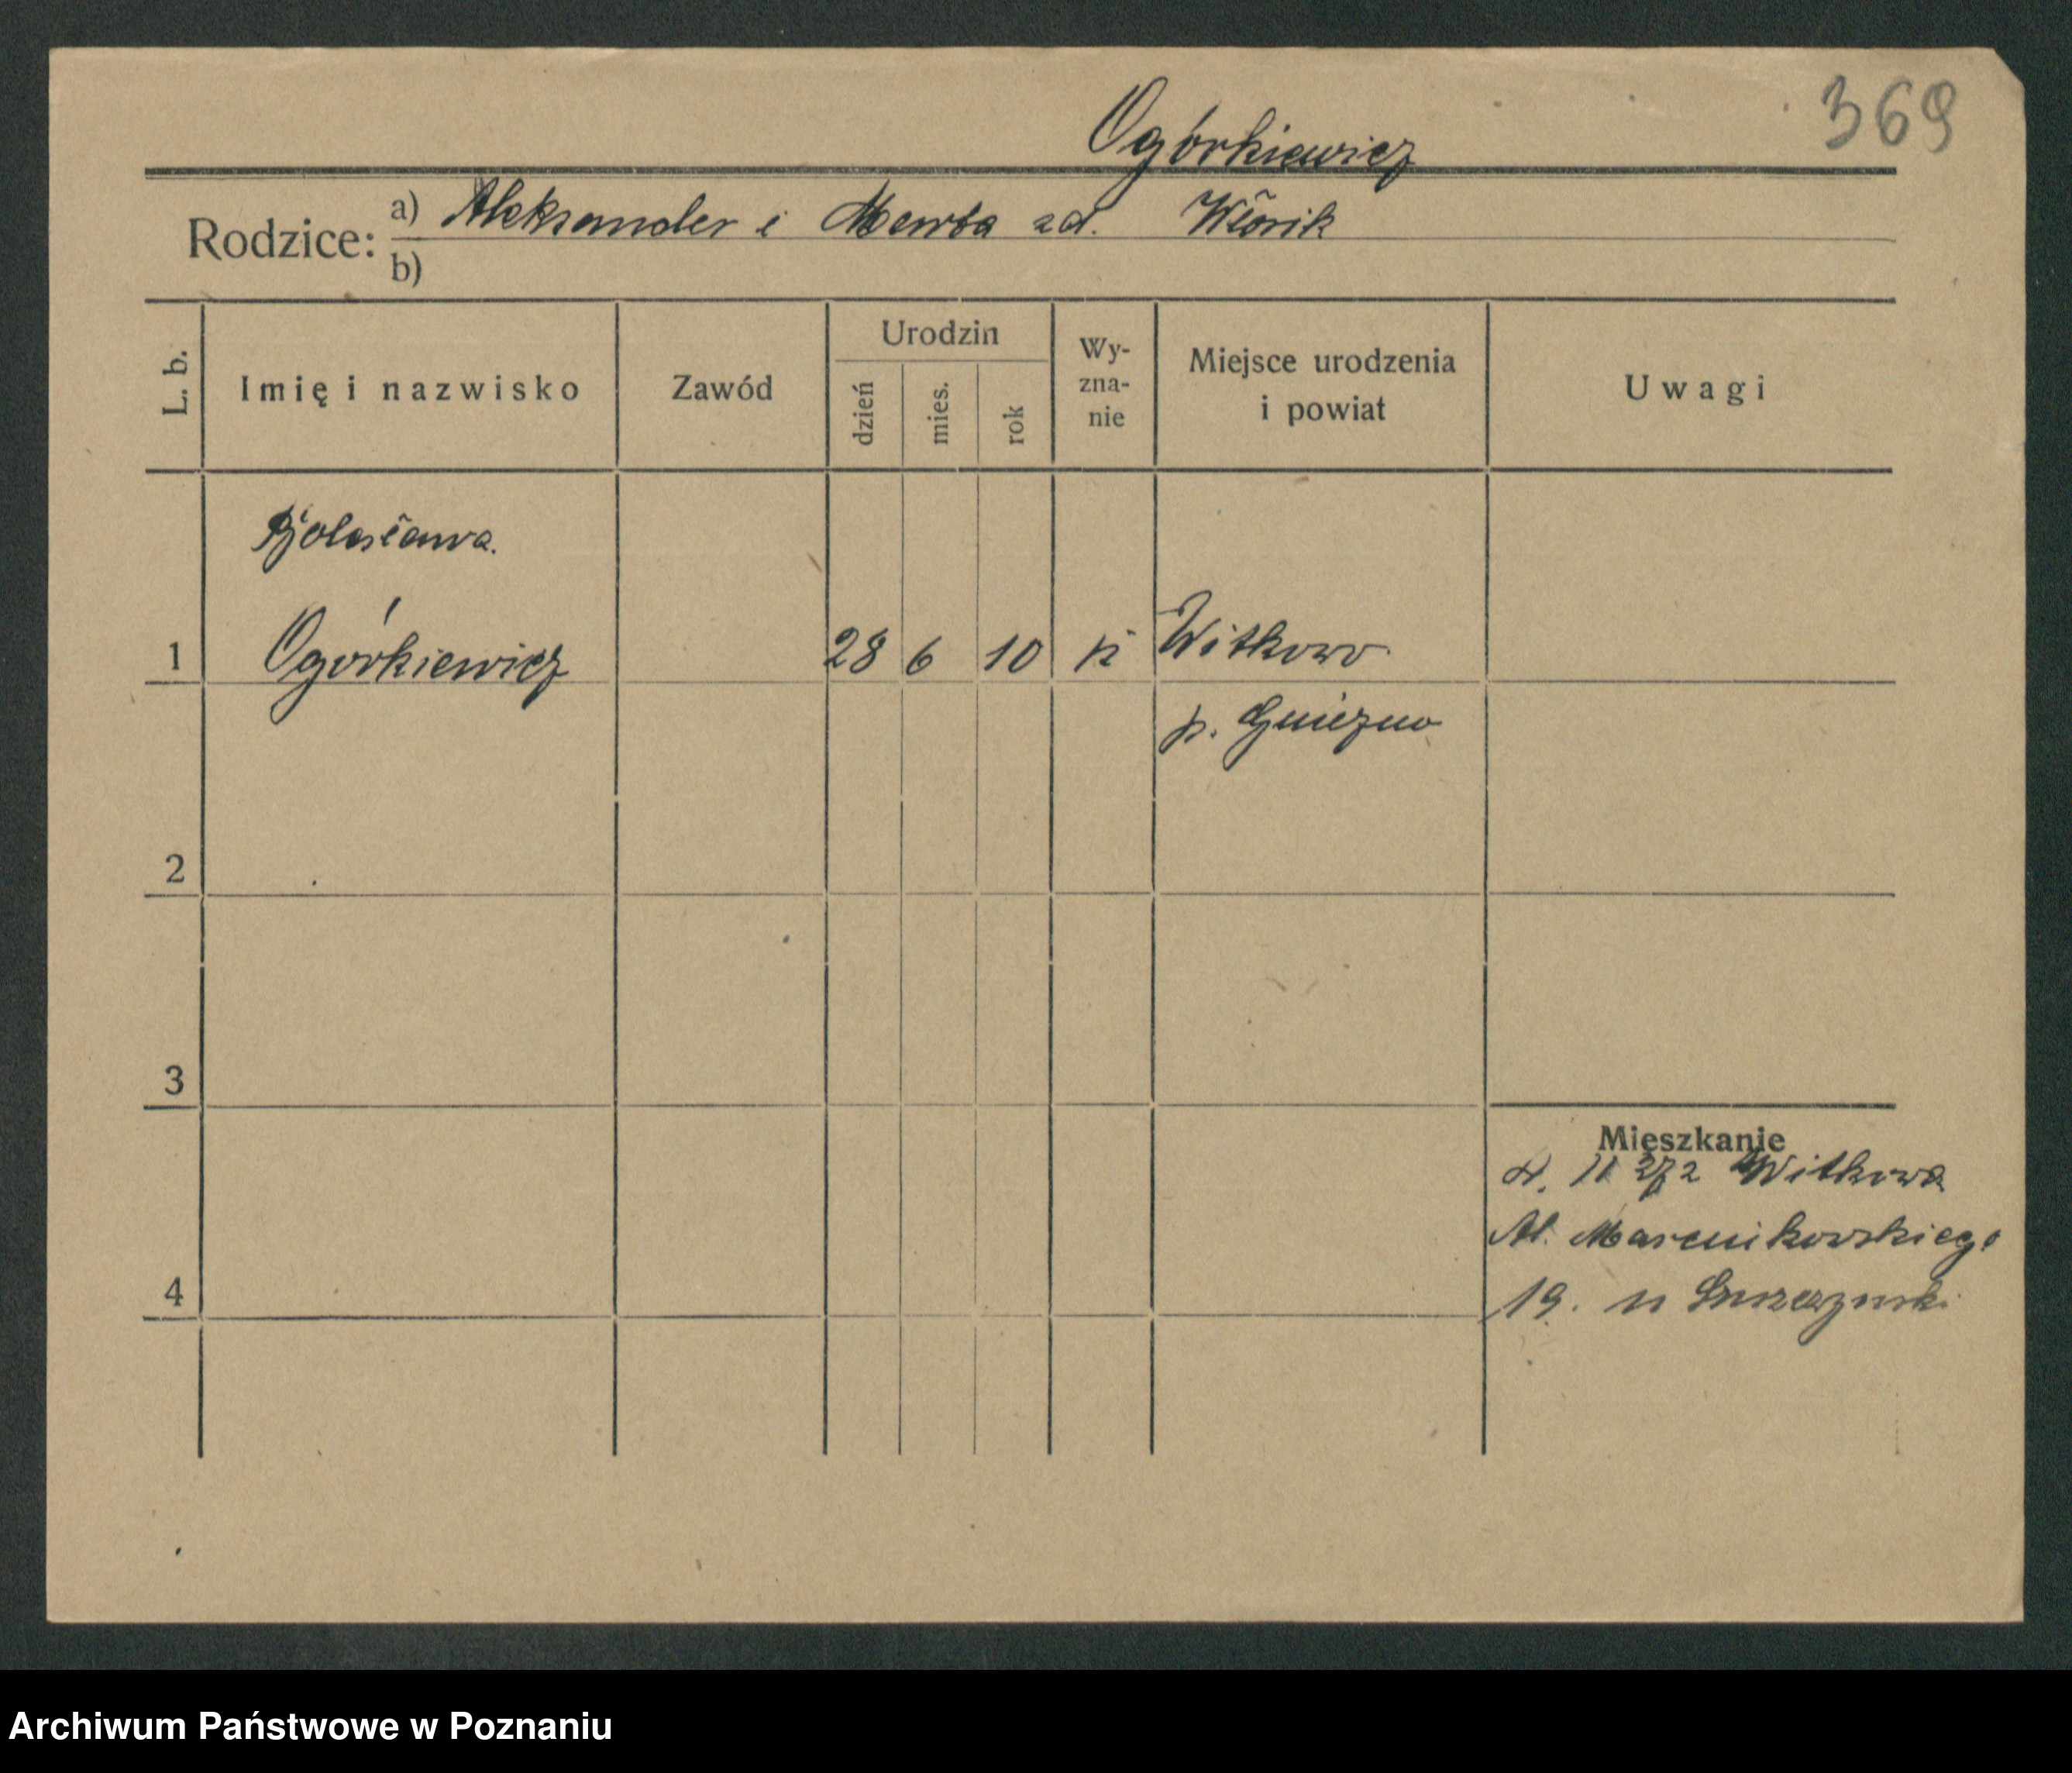 369
Ogórkiewicz
Rodzice: a) Aleksander i
b)
L. b. Imię i nazwisko Zawód Urodzin dzień mies. rok Wy-zna-nie Miejsce urodzenia i powiat Uwagi
Bolesława.
1 Ogórkiewicz 28 6 10 Witkowo
p. Gniezno
2
3
Mieszkanie
Witkowa
Al. Marcinkowskiego
4 19.
Archiwum Państwowe w Poznaniu